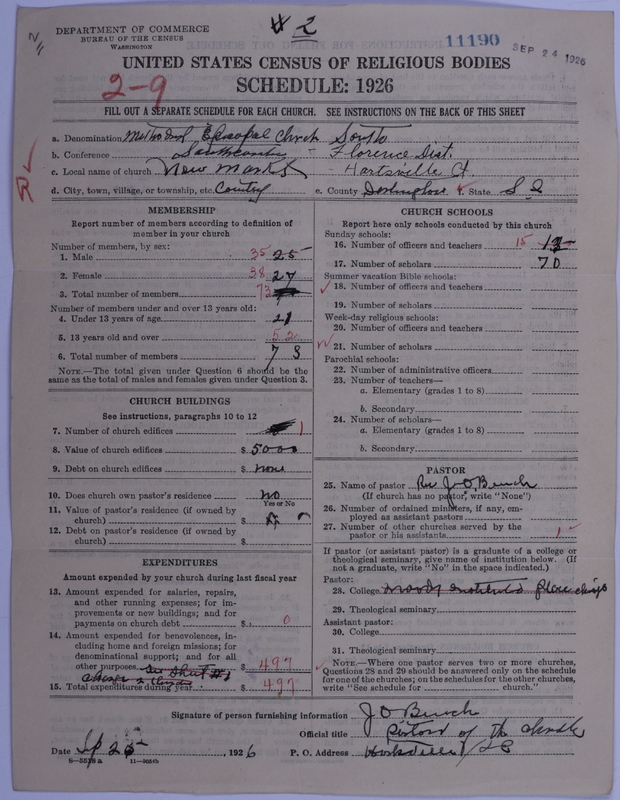 # 2
DEPARTMENT OF COMMERCE
BUREAU OF THE CENSUS
WASHINGTON
11190
SEP 24 1926
UNITED STATES CENSUS OF RELIGIOUS BODIES
2-9
SCHEDULE: 1926
FILL OUT A SEPARATE SCHEDULE FOR EACH CHURCH. SEE INSTRUCTIONS ON THE BACK OF THIS SHEET
a. Denomination Methodist Episcopal Church South
b. Conference South Carolina - Florence Dist.
c. Local name of church New Market - Hartsville Ct.
d. City, town, village, or township, etc. Country e. County Darlington f. State S C
R
MEMBERSHIP
Report number of members according to definition of member in your church
Number of members, by sex:
1. Male 35 25
2. Female 38 27
3. Total number of members 73
Number of members under and over 13 years old:
4. Under 13 years of age 21
5. 13 years old and over 52
6. Total number of members 73
NOTE.—The total given under Question 6 should be the
same as the total of males and females given under Question 3.
CHURCH BUILDINGS
See instructions, paragraphs 10 to 12
7. Number of church edifices 1
8. Value of church edifices $ 5000
9. Debt on church edifices $ none
10. Does church own pastor's residence no
Yes or No
11. Value of pastor's residence (if owned by
church) $
12. Debt on pastor's residence (if owned by
church) $
EXPENDITURES
Amount expended by your church during last fiscal year
13. Amount expended for salaries, repairs,
and other running expenses; for im-
provements or new buildings; and for
payments on church debt $ 0
14. Amount expended for benevolences, in-
cluding home and foreign missions; for
denominational support; and for all
other purposes $ 497
15. Total expenditures during year $ 497
CHURCH SCHOOLS
Report here only schools conducted by this church
Sunday schools:
16. Number of officers and teachers 15
17. Number of scholars 70
Summer vacation Bible schools:
18. Number of officers and teachers
19. Number of scholars
Week-day religious schools:
20. Number of officers and teachers
21. Number of scholars
Parochial schools:
22. Number of administrative officers
23. Number of teachers—
a. Elementary (grades 1 to 8)
b. Secondary
24. Number of scholars—
a. Elementary (grades 1 to 8)
b. Secondary
PASTOR
25. Name of pastor Rev J O Burch
(If church has no pastor, write "None")
26. Number of ordained ministers, if any, em-
ployed as assistant pastors
27. Number of other churches served by the
pastor or his assistants 1
If pastor (or assistant pastor) is a graduate of a college or
theological seminary, give name of institution below. (If
not a graduate, write "No" in the space indicated.)
Pastor:
28. College Moody Institute
29. Theological seminary
Assistant pastor:
30. College
31. Theological seminary
NOTE.—Where one pastor serves two or more churches,
Questions 28 and 29 should be answered only on the schedule
for one of the churches; on the schedules for the other churches,
write "See schedule for church."
Signature of person furnishing information J O Burch
Official title Pastor of the church
Date Sep 25 1926 P. O. Address Hartsville, SC
8-5518 a 11-9054b